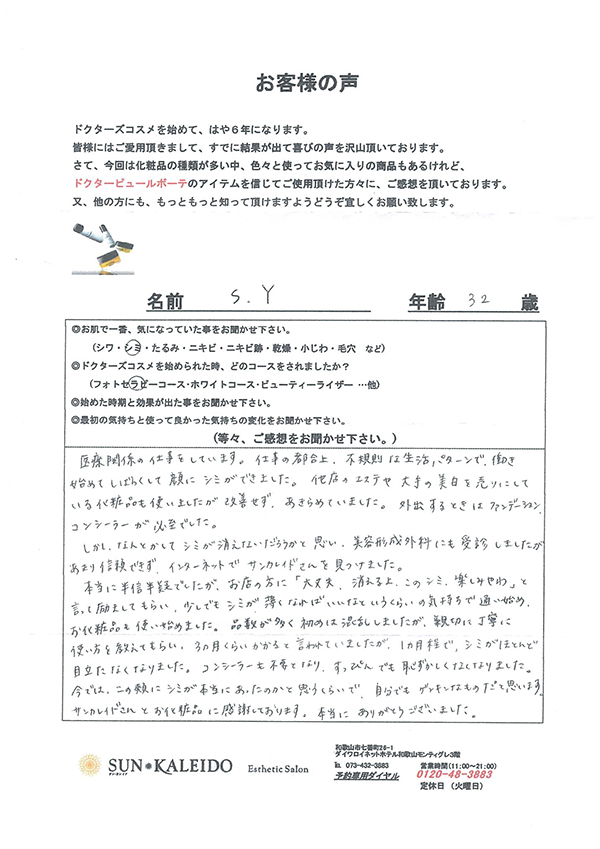 お客様の声
ドクターズコスメを始めて、はや６年になります。
皆様にはご愛用頂きまして、すでに結果が出て喜びの声を沢山頂いております。
さて、今回は化粧品の種類が多い中、色々と使ってお気に入りの商品もあるけれど、
ドクターピュールボーテのアイテムを信じてご使用頂けた方々に、ご感想を頂いております。
又、他の方にも、もっともっと知って頂けますようどうぞ宜しくお願い致します。
名前 S.Y 年齢 32 歳
◎お肌で一番、気になっていた事をお聞かせ下さい。
（シワ・シミ・たるみ・ニキビ・ニキビ跡・乾燥・小じわ・毛穴 など）
◎ドクターズコスメを始められた時、どのコースをされましたか？
（フォトセラピーコース・ホワイトコース・ビューティーライザー …他）
◎始めた時期と効果が出た事をお聞かせ下さい。
◎最初の気持ちと使って良かった気持ちの変化をお聞かせ下さい。
（等々、ご感想をお聞かせ下さい。）
医療関係の仕事をしています。仕事の都合上、不規則な生活パターンで、働き
始めてしばらくして顔にシミができました。他店のエステや大手の美白を売りにして
いる化粧品も使いましたが改善せず、あきらめていました。外出するときはファンデーション、
コンシーラーが必至でした。
しかし、なんとかしてシミが消えないだろうかと思い、美容形成外科にも受診しましたが
あまり信頼できず、インターネットでサンカレイドさんを見つけました。
本当に半信半疑でしたが、お店の方に「大丈夫、消えるよ、このシミ、楽しみやわ」と
言って励ましてもらい、少しでもシミが薄くなればいいなというくらいの気持ちで通い始め、
お化粧品も使い始めました。品数が多く初めは混乱しましたが、親切に丁寧に
使い方を教えてもらい、3ヵ月くらいかかると言われていましたが、1ヵ月程で、シミがほとんど
目立たなくなりました。コンシーラーも不要となり、すっぴんでも恥ずかしくなくなりました。
今では、この頬にシミが本当にあったのかと思うくらいで、自分でもゲンキンなものだと思います。
サンカレイドさんとお化粧品に感謝しております。本当にありがとうございました。
SUN KALEIDO Esthetic Salon
和歌山市七番町26-1
ダイワロイネットホテル和歌山モンティグレ3階
℡ 073-432-3883 営業時間（11:00～21:00）
予約専用ダイヤル 0120-48-3883
定休日（火曜日）